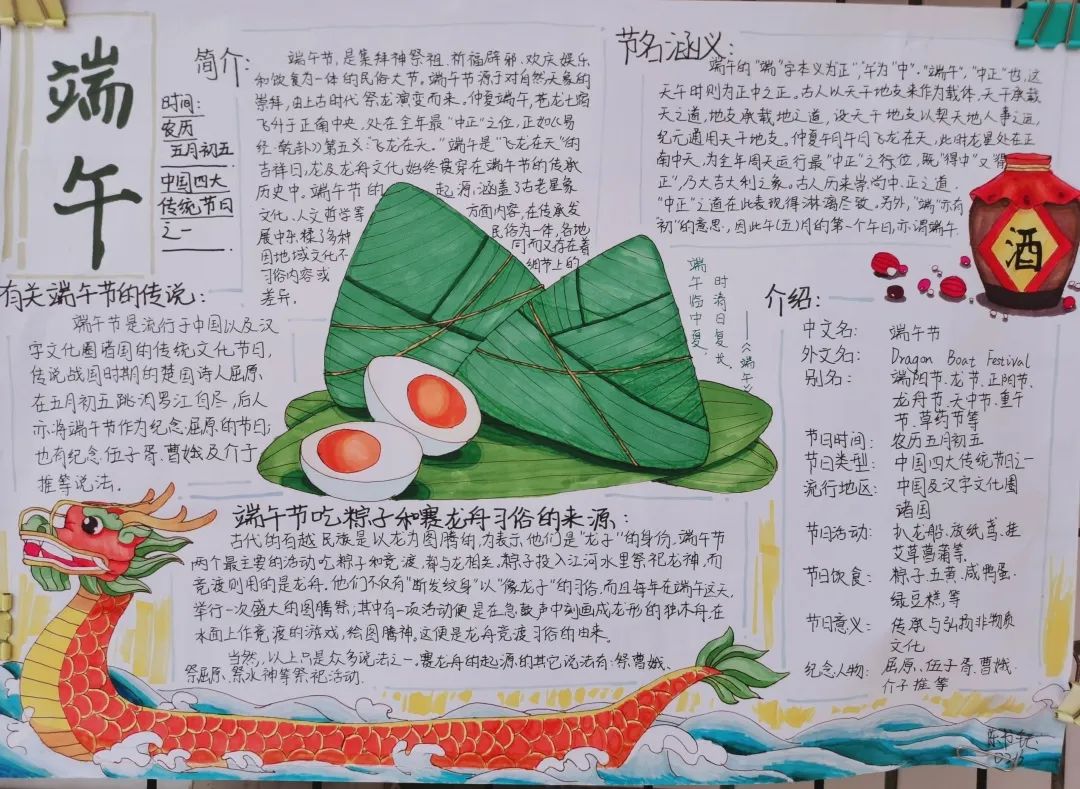 端午
时间:
农历
五月初五
中国四大
传统节日
之一
简介:
端午节,是集拜神祭祖、祈福辟邪、欢庆娱乐
和饮食为一体的民俗大节。端午节源于对自然天象的
崇拜,由上古时代祭龙演变而来。仲夏端午,苍龙七宿
飞升于正南中央,处在全年最“中正”之位,正如《易
经·乾卦》第五爻:“飞龙在天。”端午是“飞龙在天”的
吉祥日,龙及龙舟文化始终贯穿在端午节的传承
历史中。端午节的起源,涵盖了古老星象
文化、人文哲学等方面内容,在传承发
展中杂糅了多种民俗为一体,各地
因地域文化不同而又存在着
习俗内容或细节上的
差异。
节名涵义:
端午的“端”字本义为“正”,“午”为“中”。“端午”,“中正”也,这
天午时则为正中之正。古人以天干地支来作为载体,天干承载
天之道,地支承载地之道,设天干地支以契天地人事之运,
纪元通用天干地支。仲夏午月午日飞龙在天,此时龙星处在正
南中天,为全年周天运行最“中正”之行位,既“得中”又“得
正”,乃大吉大利之象。古人历来崇尚中、正之道,
“中正”之道在此表现得淋漓尽致。另外,“端”亦有
“初”的意思,因此午(五)月的第一个午日,亦谓端午.
酒
有关端午节的传说:
端午节是流行于中国以及汉
字文化圈诸国的传统文化节日,
传说战国时期的楚国诗人屈原
在五月初五跳汨罗江自尽,后人
亦将端午节作为纪念屈原的节日;
也有纪念伍子胥、曹娥及介子
推等说法.
端午临中夏,
时清日复长.
——《端午》
介绍:
中文名: 端午节
外文名: Dragon Boat Festival
别名: 端阳节、龙节、正阳节、
龙舟节、天中节、重午
节、草药节等
节日时间: 农历五月初五
节日类型: 中国四大传统节日之一
流行地区: 中国及汉字文化圈
诸国
节日活动: 扒龙船、放纸鸢、挂
艾草菖蒲等.
节日饮食: 粽子、五黄、咸鸭蛋、
绿豆糕,等
节日意义: 传承与弘扬非物质
文化
纪念人物: 屈原、伍子胥、曹娥、
介子推等
端午节吃粽子和赛龙舟习俗的来源:
古代的百越民族是以龙为图腾的,为表示他们是“龙子”的身份,端午节
两个最主要的活动吃粽子和竞渡,都与龙相关。粽子投入江河水里祭祀龙神,而
竞渡则用的是龙舟。他们不仅有“断发纹身”以“像龙子”的习俗,而且每年在端午这天,
举行一次盛大的图腾祭,其中有一项活动便是在急鼓声中刻画成龙形的独木舟,在
水面上作竞渡的游戏,给图腾神。这便是龙舟竞渡习俗的由来。
当然,以上只是众多说法之一。赛龙舟的起源的其它说法有:祭曹娥、
祭屈原、祭水神等祭祀活动.